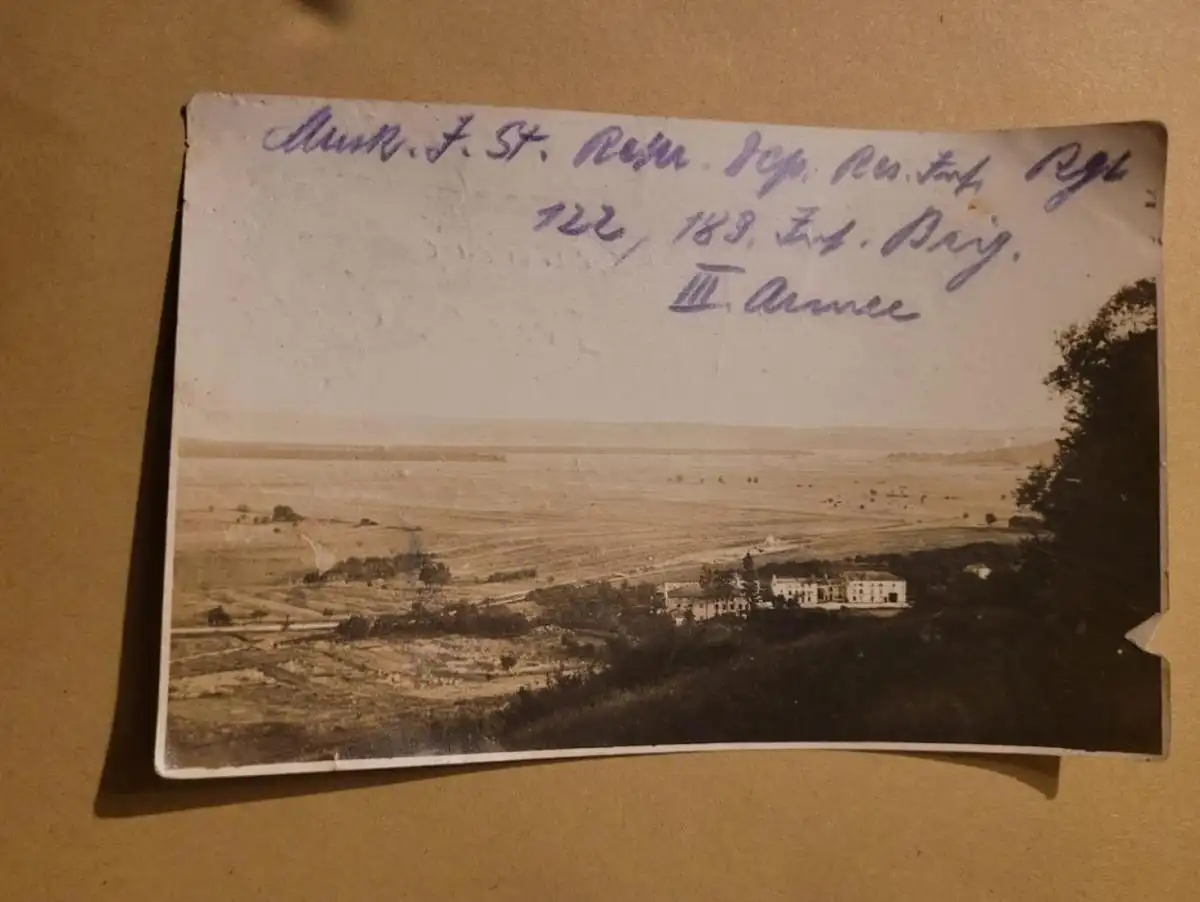 Musk. J. St. Rekr. Dep. Res. Inf. Rgt
122, 183. Inf. Brig.
III. Armee